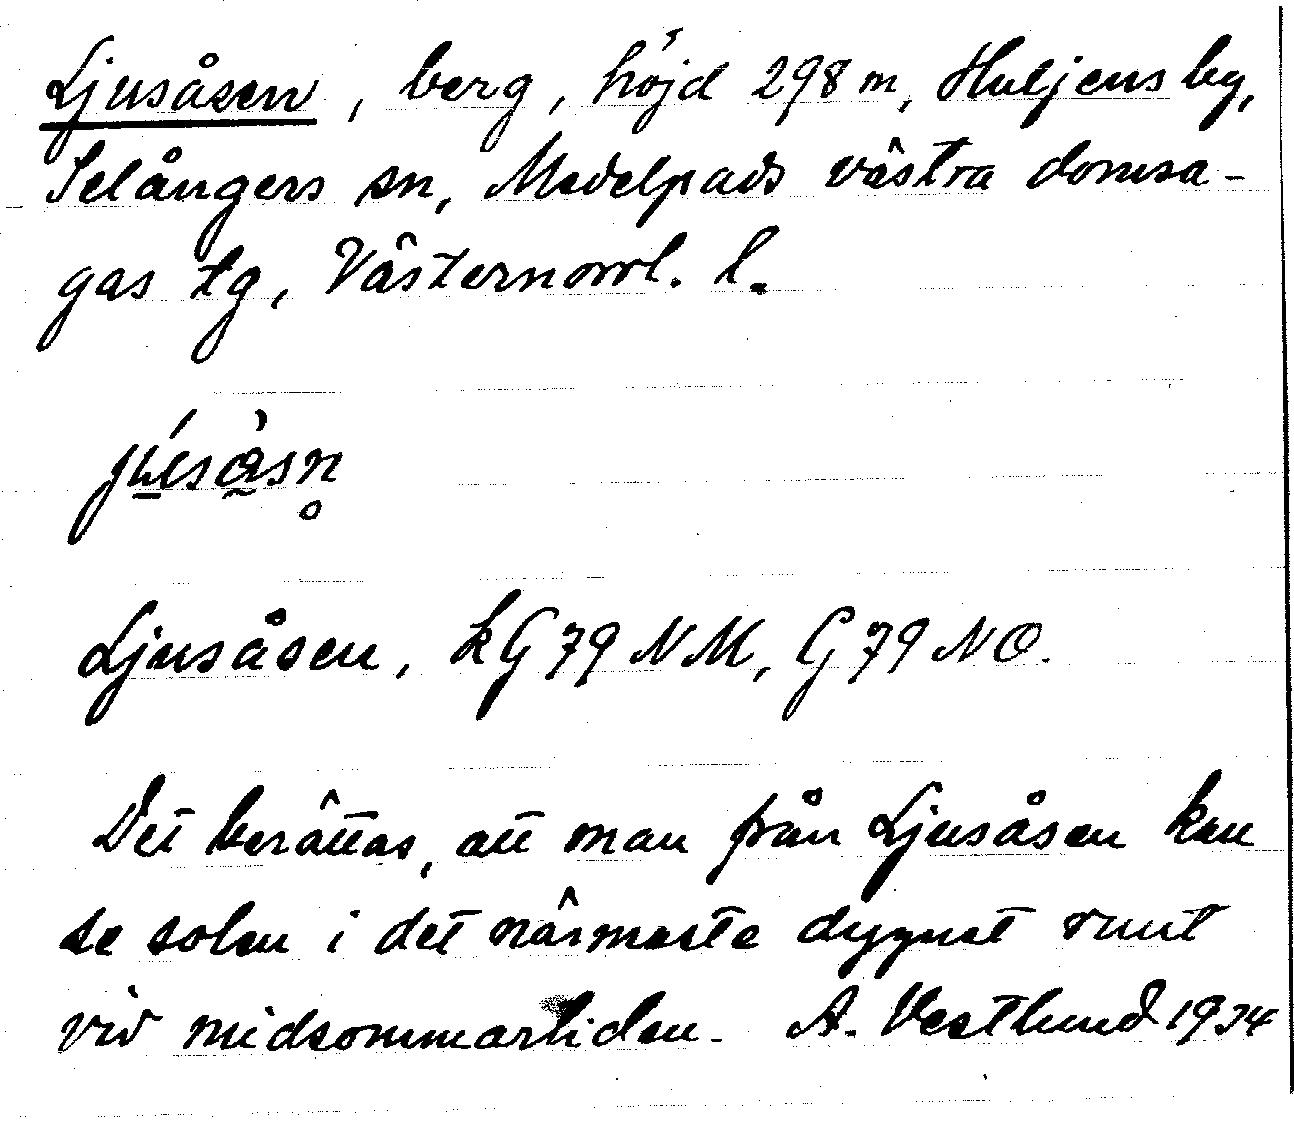 Ljusåsen, berg, höjd 298 m, Huljens by,
Selångers sn, Medelpads västra domsa-
gas tg, Västernorrl. l.
Ljusåsen, kG79NM, G79NO.
Det berättas, att man från Ljusåsen kan
se solen i det närmaste dygnet runt
vid midsommartiden. A. Vestlund 1934